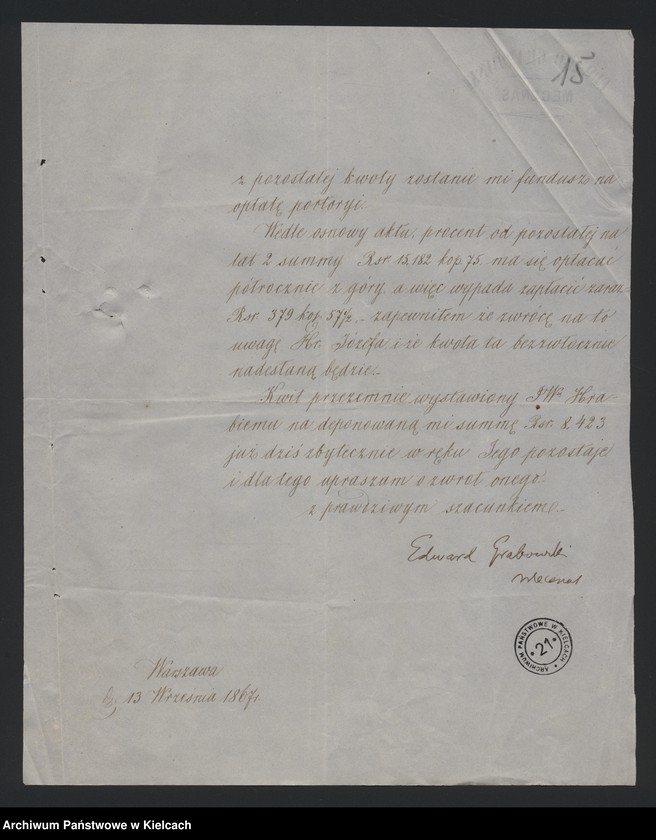 15
z pozostałej kwoty zostanie mi fundusz na
opłatę portoryi
Wedle osnowy aktu, procent od pozostałej na
lat 2 summy Rsr 15,182 kop. 75. ma się opłacać
półrocznie z góry, a więc wypada zapłacić zaraz
Rsr. 379 kop. 57½ – zapewniłem że zwrócę na to
uwagę Hr. Józefa i że kwota ta bezzwłocznie
nadesłaną będzie.–
Kwit przezemnie wystawiony JWu Hra-
biemu na deponowaną mi summę Rsr. 8,423
już dziś zbytecznie w ręku Jego pozostaje
i dlatego upraszam o zwrot onego
z prawdziwym szacunkiem.–
Edward Grabowski
Mecenas
ARCHIWUM PAŃSTWOWE W KIELCACH
* 21 *
Warszawa
13 Września 1867r.
Archiwum Państwowe w Kielcach